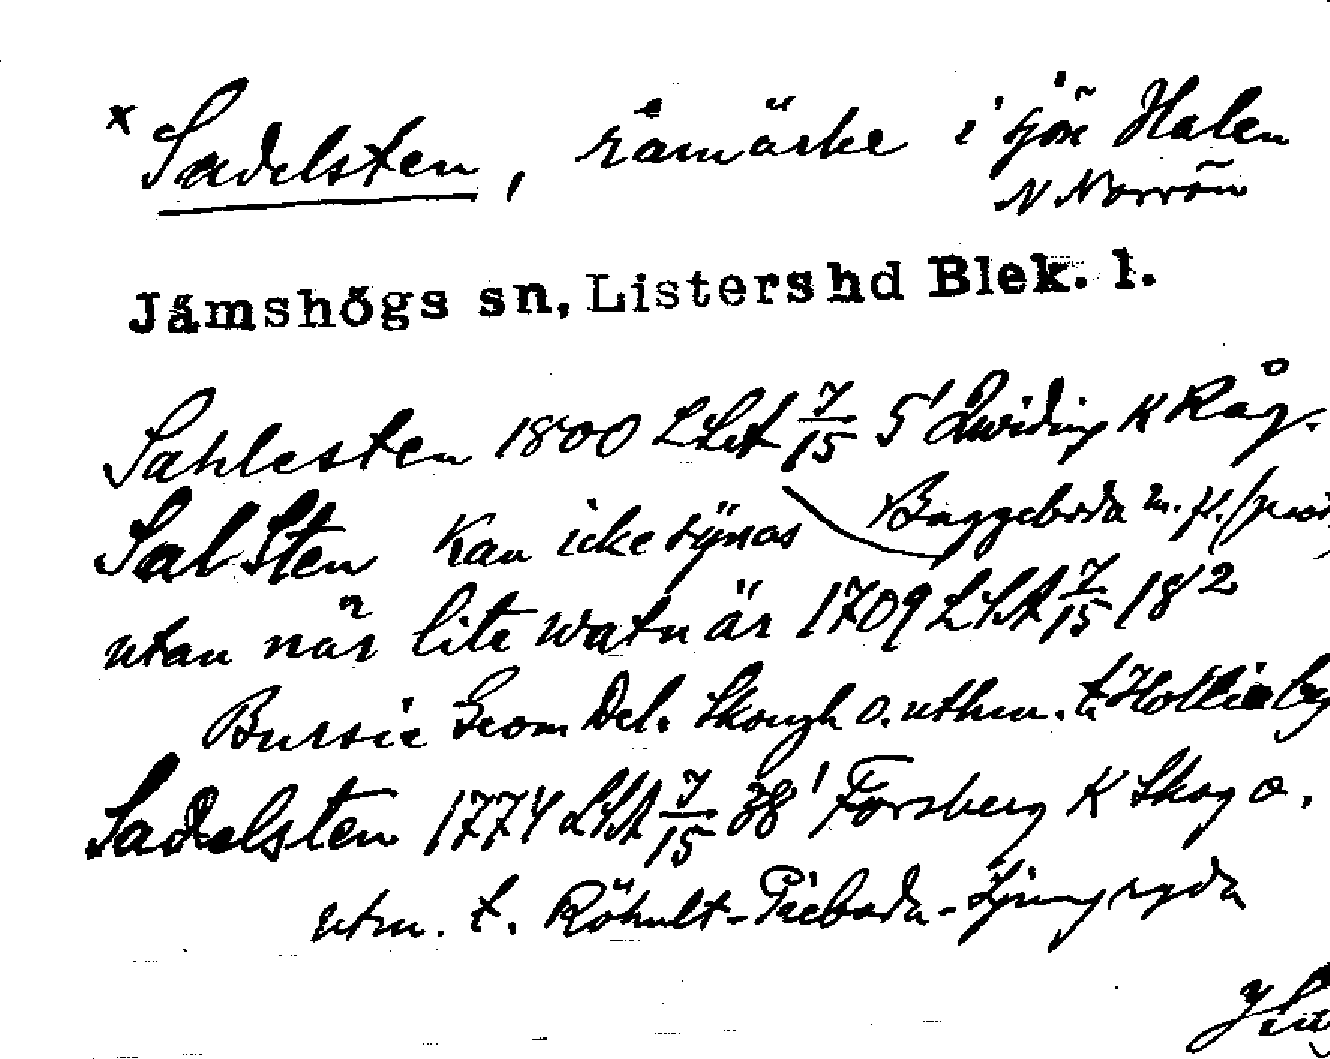 x Sadelsten, råmärke i sjön Halen
N Norrön
Jämshögs sn, Listershd Blek. l.
Sahlesten 1800 LSA 7/15 5' Qwiding K Råg.
Sal Sten Kan icke synas Baggeboda m. fl.
utan när lite watn är 1709 LSA 7/15 18 2
Bursie Geom Del. Skough o. uthm. t.
Sadelsten 1774 LSA 7/15 38' Forsberg K Skog o.
utm. t. Röhult-Pieboda-Ljungryda